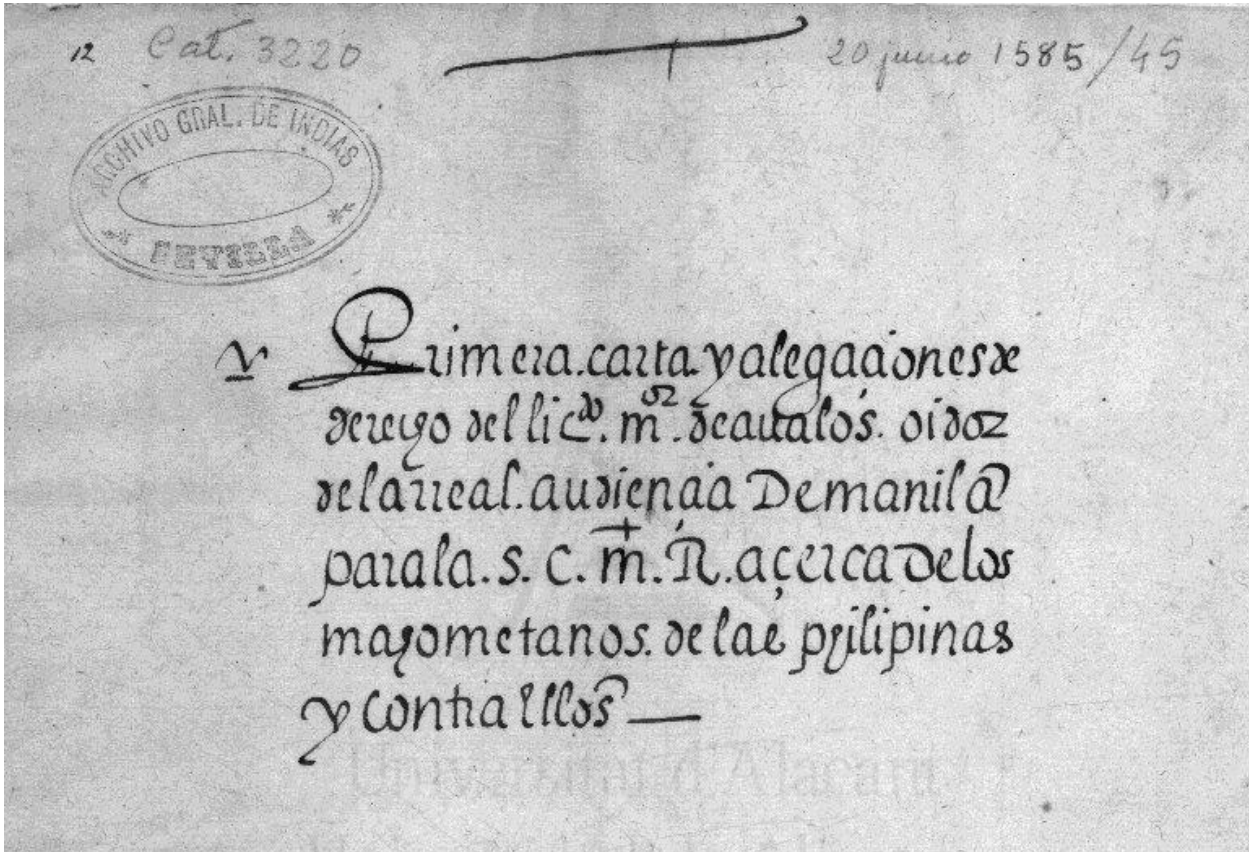 12 Cat. 3220
20 junio 1585/45
ARCHIVO GRAL. DE INDIAS
SEVILLA
Primera. carta. y alegaçiones de
derecho del licdo. mor. de aualos. oidor
de la rreal. audiençia De manila
para la. s. c. m. R. açerca de los
mahometanos. de las philipinas
y contra ellos
Universitat d'Alacant